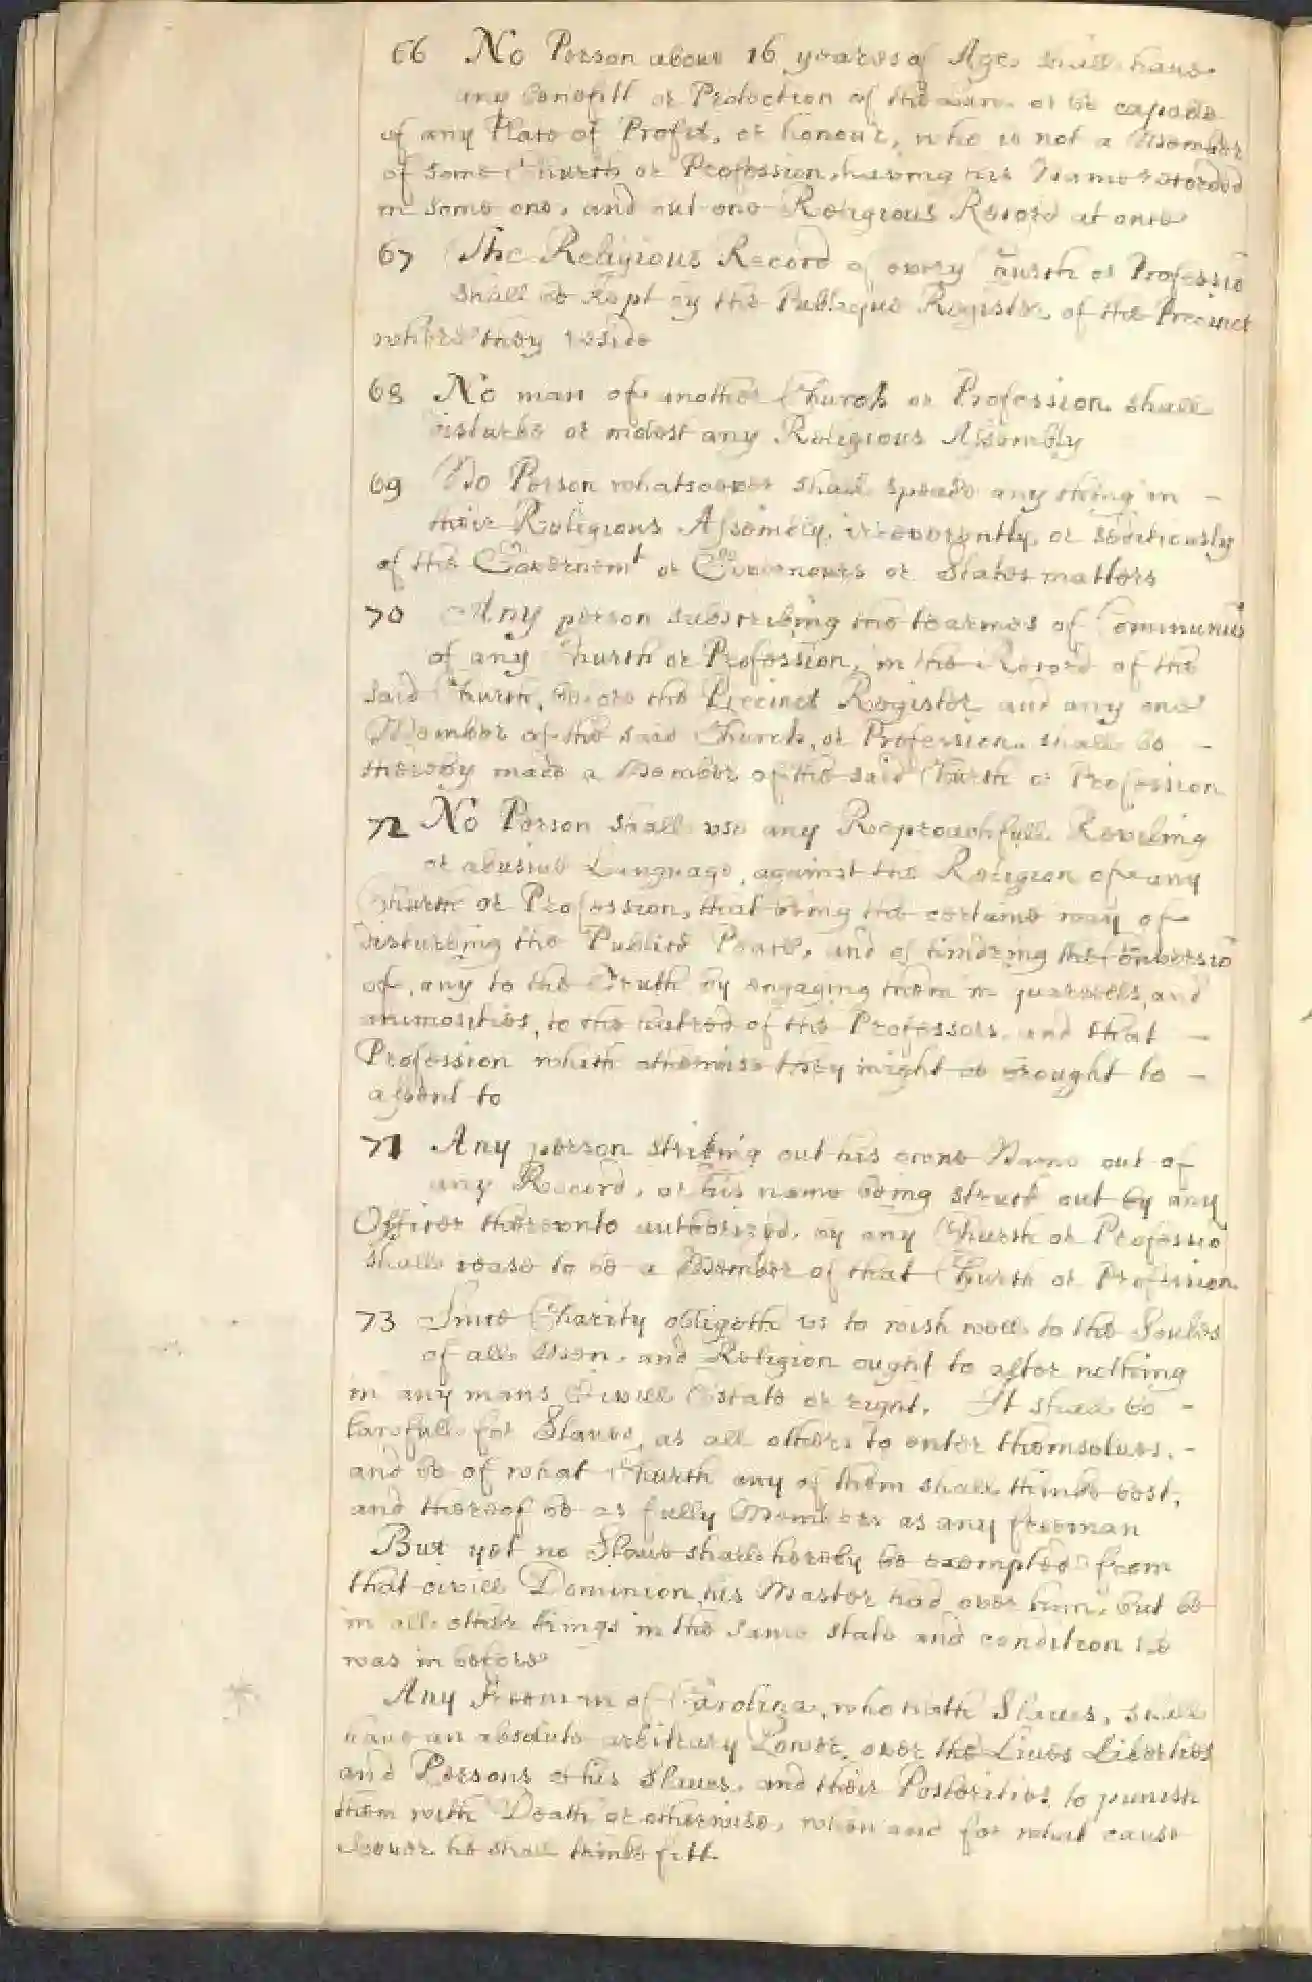 66 No Person above 16 yeares of Age shall have
any benefitt or Protection of the Law or be capable
of any Place of Profit, or honour, who is not a Member
of some Church or Profession, having his Name recorded
in some one, and but one Religious Record at once
67 The Religious Record of every Church or Professiō
shall be kept by the Publique Register of the Precinct
where they reside
68 No man of another Church or Profession shall
disturbe or molest any Religious Assembly
69 No Person whatsoever shall speake any thing in -
their Religious Assembly, irreverently, or seditiously
of the Governemt or Governours or States matters
70 Any person subscribing the tearmes of Communiō
of any Church or Profession, in the Record of the
said Church, before the Precinct Register and any one
Member of the said Church, or Profession shall be -
thereby made a Member of the said Church or Profession
72 No Person shall use any Reproachfull Reveling
or abusive Language, against the Religion of any
Church or Profession, that being the certaine way of
disturbing the Publick Peace, and of hindring the Conversiō
of any to the Truth by engaging them in quarrells, and
animosities, to the hatred of the Professors and that -
Profession which otherwise they might be brought to -
assent to
71 Any person striking out his owne Name out of
any Record, or his name being struck out by any
Officer thereunto authorized, by any Church or Professiō
shall cease to be a Member of that Church or Profession
73 Since Charity obligeth us to wish well to the Soules
of all Men, and Religion ought to alter nothing
in any mans Civill Estate or right. It shall be -
lawfull for Slaves, as all others to enter themselves, -
and be of what Church any of them shall thinke best,
and thereof be as fully Members as any freeman
But yet no Slave shall hereby be exempted from
that civill Dominion his Master had over him, but be
in all other things in the same state and condition he
was in before
Any Freeman of Carolina, who hath Slaves, shall
have an absolute arbitrary Power, over the Lives Liberties
and Persons of his Slaves, and their Posterities, to punish
them with Death or otherwise, when and for what cause
soever he shall thinke fitt